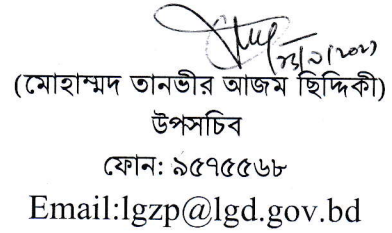 (মোহাম্মদ তানভীর আজম ছিদ্দিকী)
উপসচিব
ফোন: ৯৫৭৫৫৬৮
Email:lgzp@lgd.gov.bd